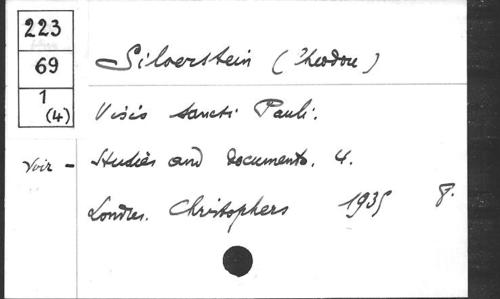 223
69
1
(4)
Silverstein (Theodore)
Visio Sancti Pauli.
Voir - Studies and Documents. 4.
Londres. Christophers 1935 8.